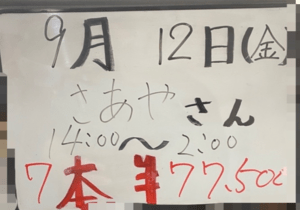 9月 12日(金)
さあやさん
14:00〜2:00
7本 ¥77.500